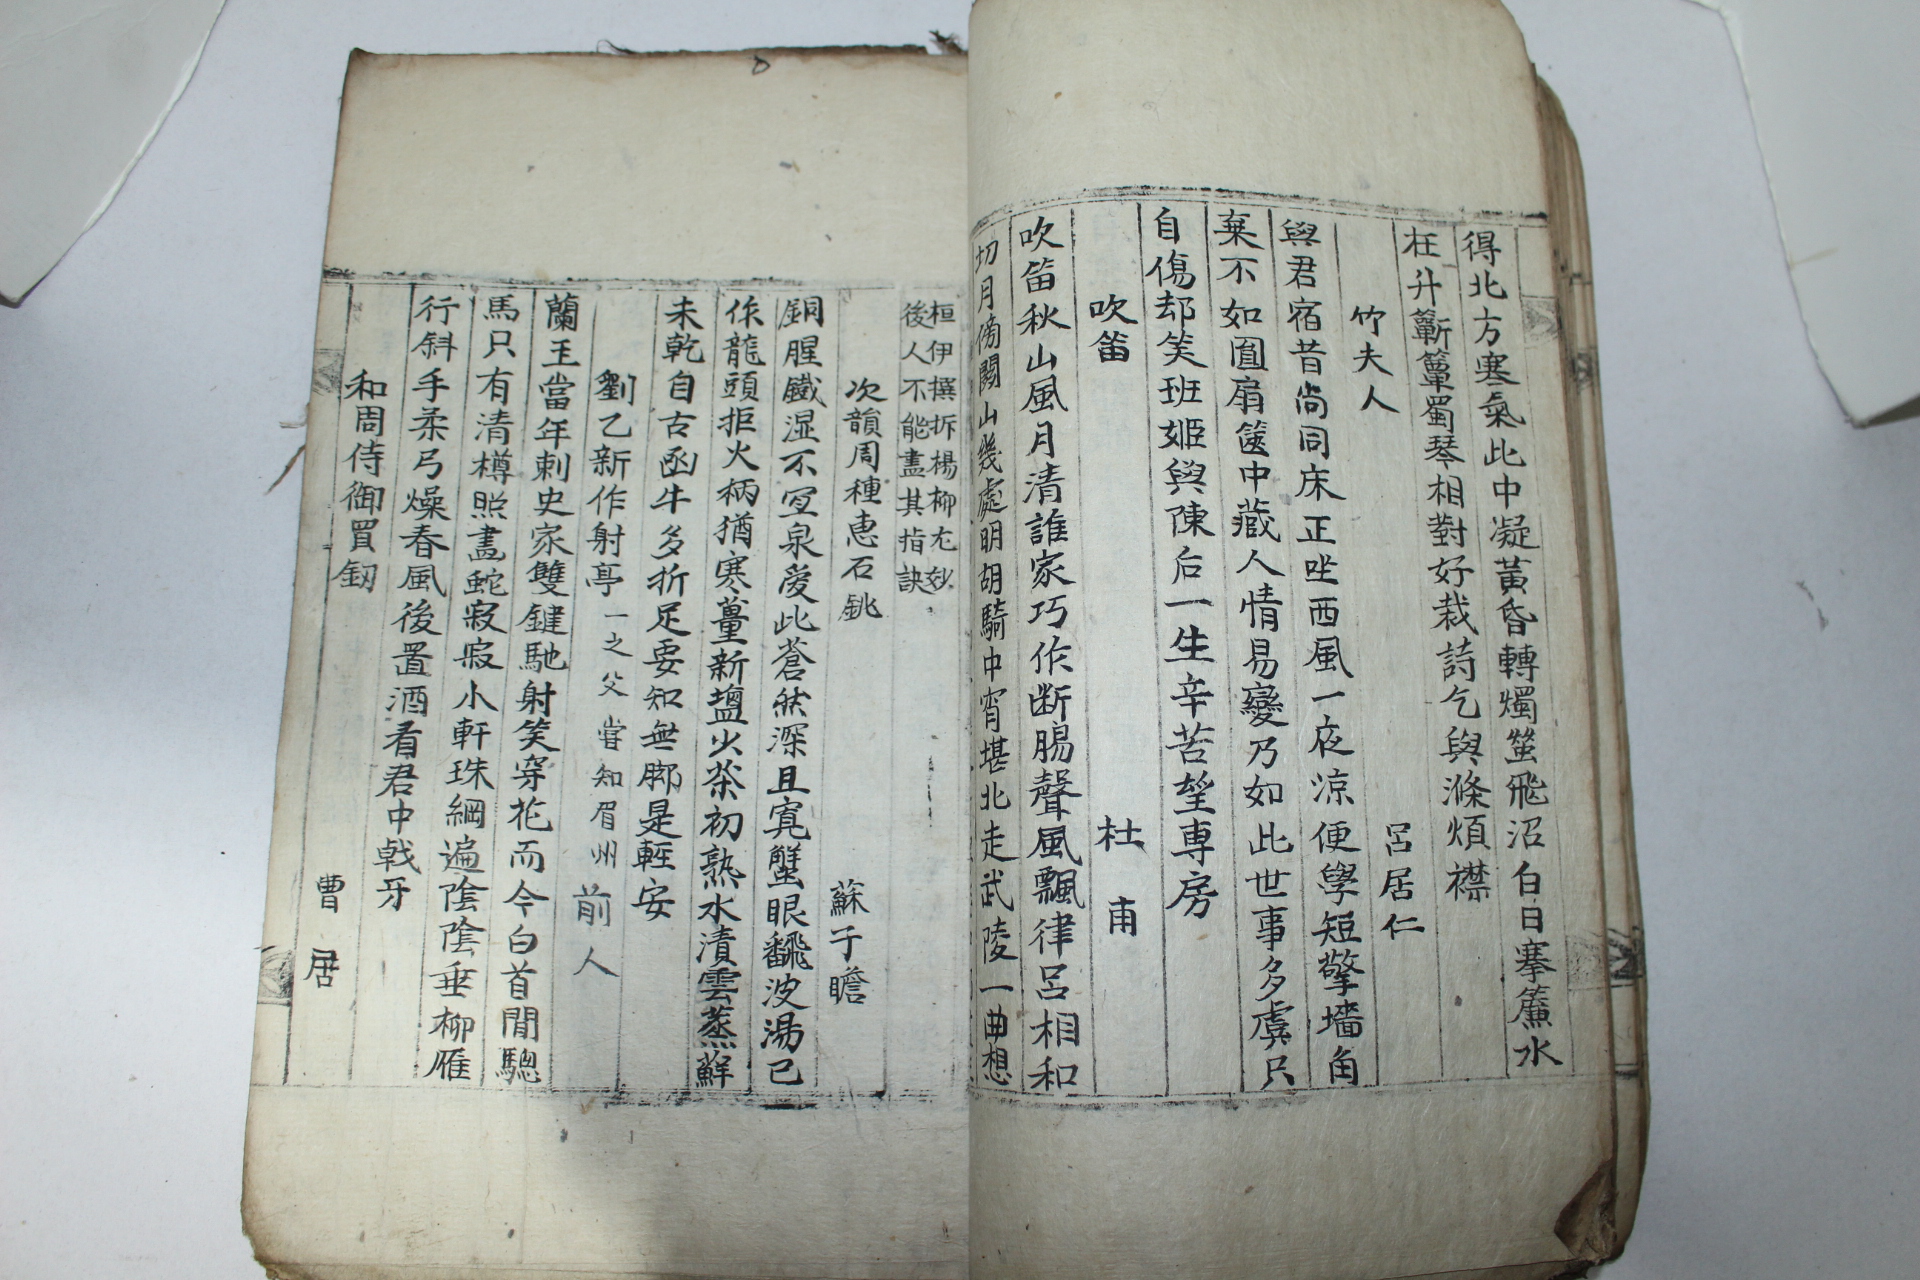 得北方寒氣此中凝黃昏轉燭螢飛沼白日搴簾水
在井蘄簟蜀琴相對好裁詩乞與滌煩襟
竹夫人 呂居仁
與君宿昔尚同床正坐西風一夜凉便學短檠墻角
棄不如團扇篋中藏人情易變乃如此世事多虞只
自傷却笑班姬與陳后一生辛苦望專房
吹笛 杜甫
吹笛秋山風月清誰家巧作断腸聲風飄律呂相和
切月傍關山幾處明胡騎中宵堪北走武陵一曲想
桓伊撰折楊柳尤妙
後人不能盡其指訣
次韻周種惠石銚 蘇子瞻
銅腥鐵澀不宜泉愛此蒼然深且寬蟹眼翻波湯已
作龍頭拒火柄猶寒薑新塩少茶初熟水漬雲蒸蘚
未乾自古函牛多折足要知無脚是輕安
劉乙新作射亭 一之父嘗知眉州 前人
蘭王當年刺史家雙鍵馳射笑穿花而今白首閒驄
馬只有清樽照畵蛇寂寂小軒珠網遍陰陰垂柳雁
行斜手柔弓燥春風後置酒看君中戟牙
和周侍御買釼 曹居